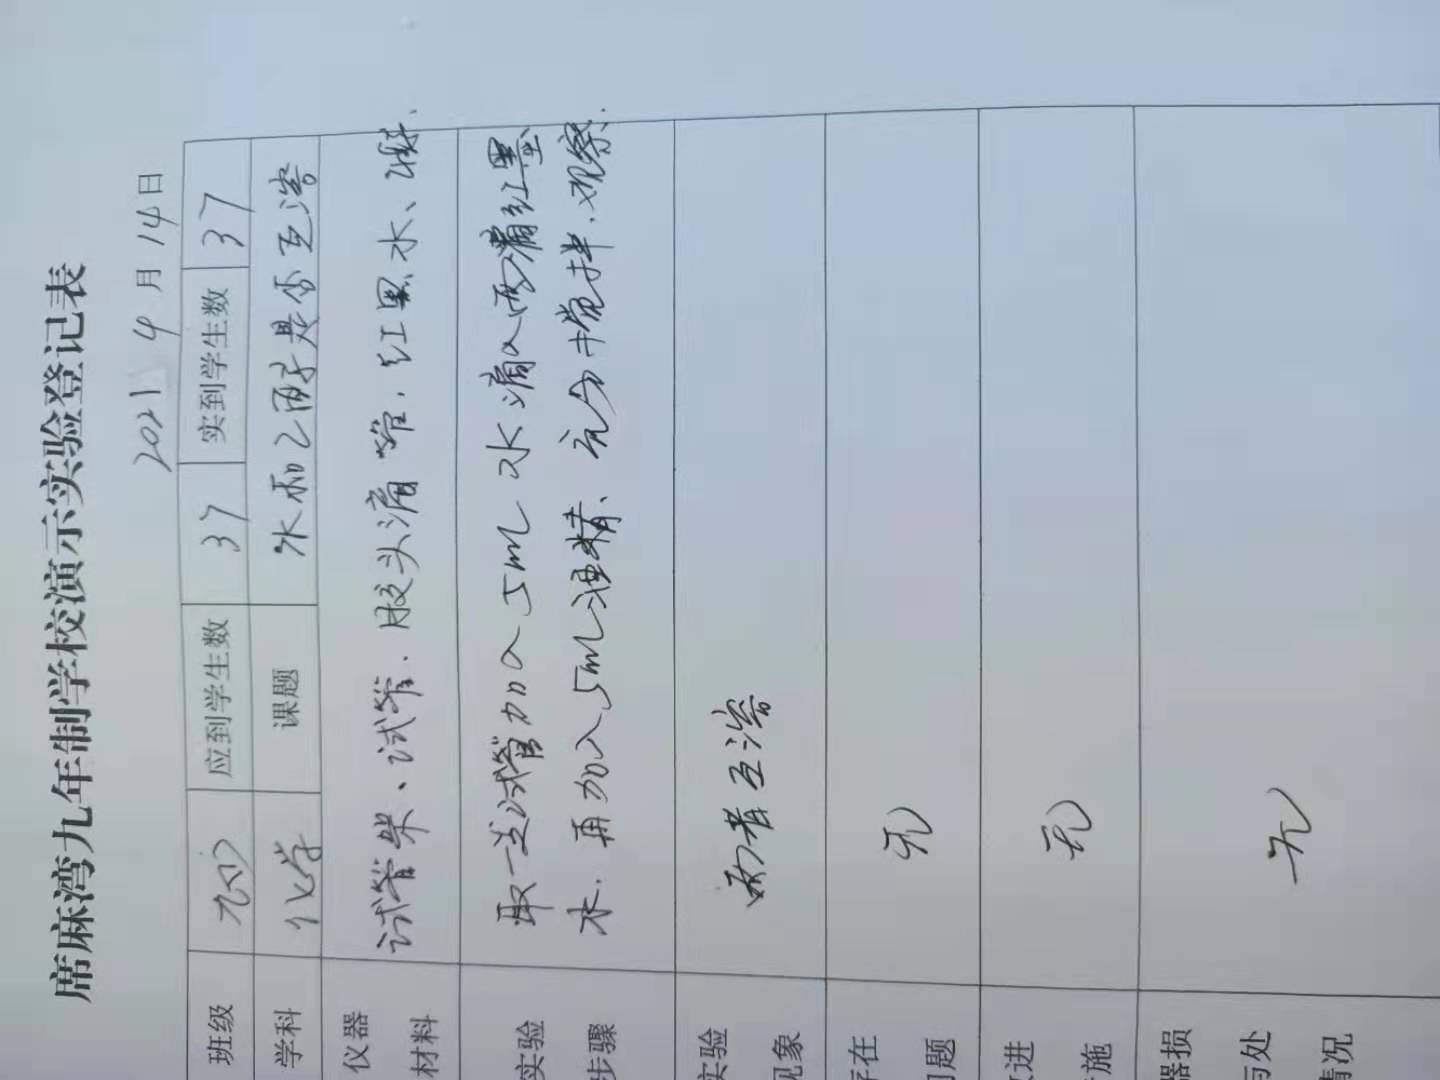 席麻湾九年制学校演示实验登记表
2021 4月14日
班级 应到学生数 37 实到学生数 37
学科 化学 课题 水和乙醇是否互溶
仪器 试管架、试管、胶头滴管、红墨水、
材料
实验 取一支试管加入5mL水滴入两滴红墨
步骤 水、再加入5mL酒精、充分搅拌、观察.
实验 两者互溶
现象
存在 无
问题
改进 无
措施
器损 无
与处
情况